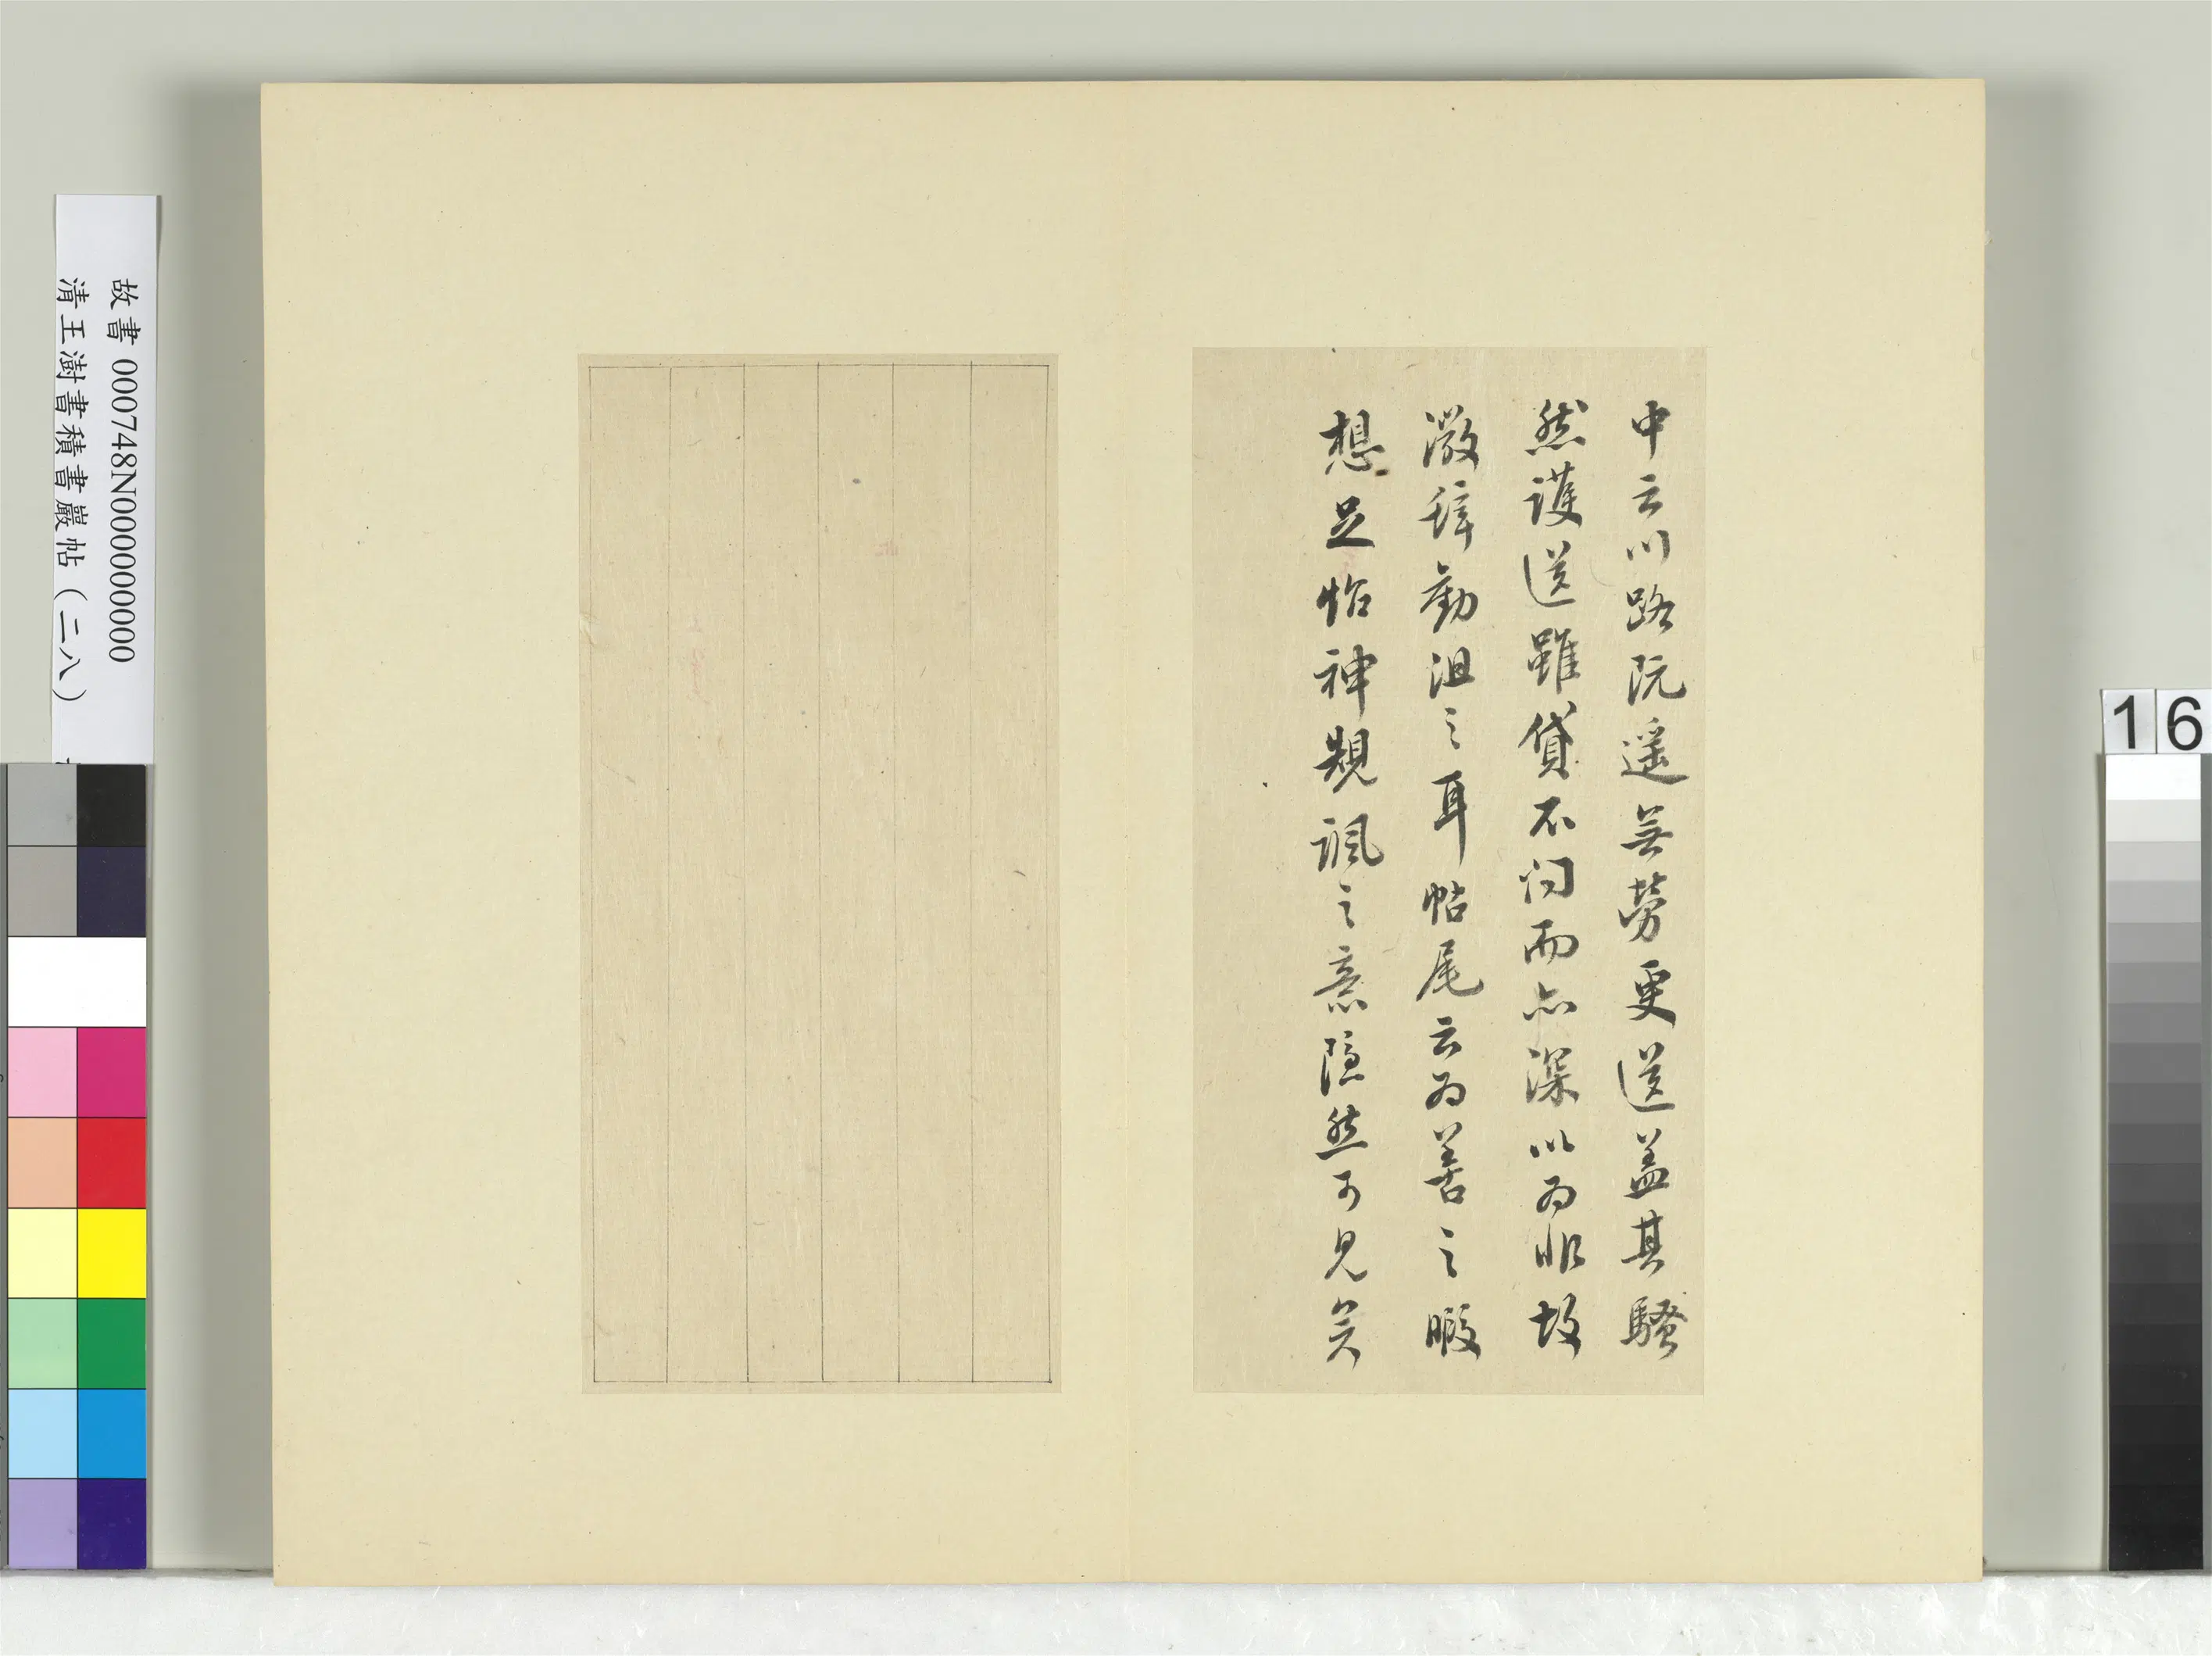 中云川路阮遥無勞更送盖其騷
然護送雖貸不问而亦深以為非故
激辞勸沮之耳帖尾云為善之暇
想足怡神規諷之意隱然可見矣
故書 000748N000000000
清王澍書積書巖帖（二八）
16